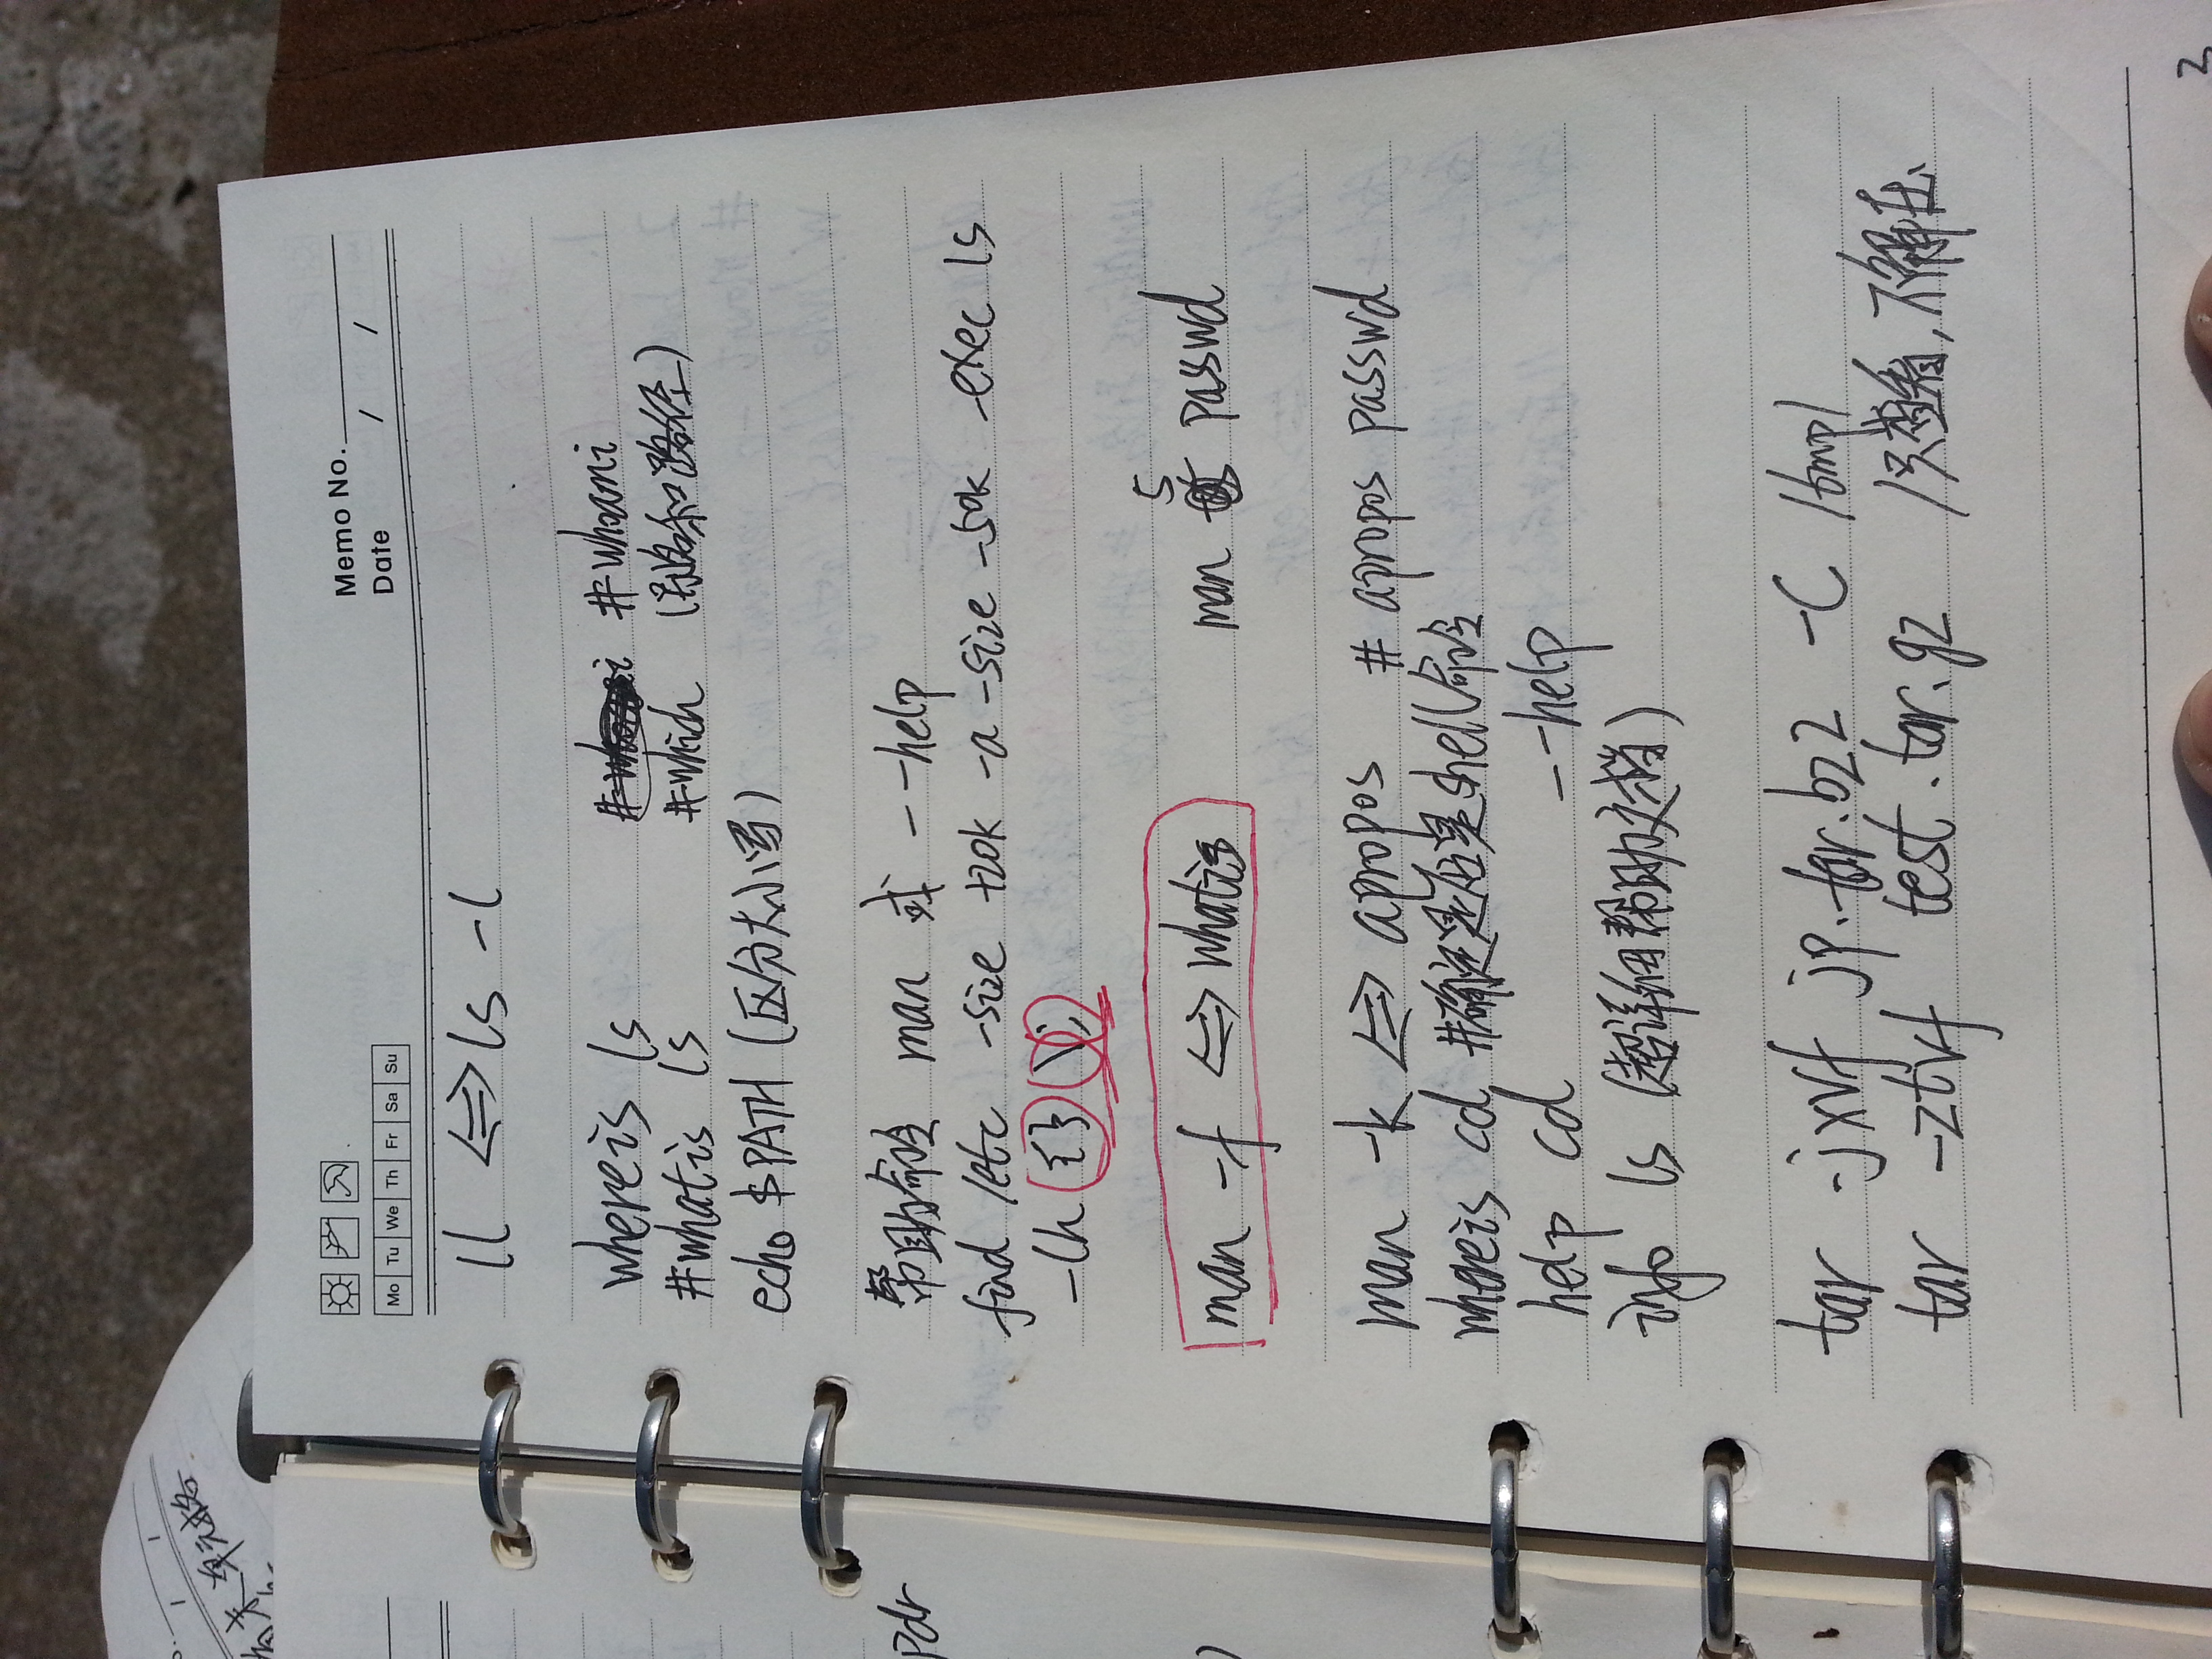 末单元格
pdr
Memo No.
Date / /
Mo Tu We Th Fr Sa Su
ll <=> ls -l
whereis ls #whoami
#whatis ls #which (别名和路径)
echo $PATH (区分大小写)
帮助命令 man 或 --help
find /etc -size +20k -a -size -50k -exec ls
-lh {} \;
man -f <=> whatis man 5 passwd
man -k <=> apropos # apropos passwd
whereis cd #确定是否是shell命令
help cd --help
info ls (超详细帮助文档)
tar -jxvf jp.tar.bz2 -C /tmp/
tar -ztvf test.tar.gz /只查看,不解压
3